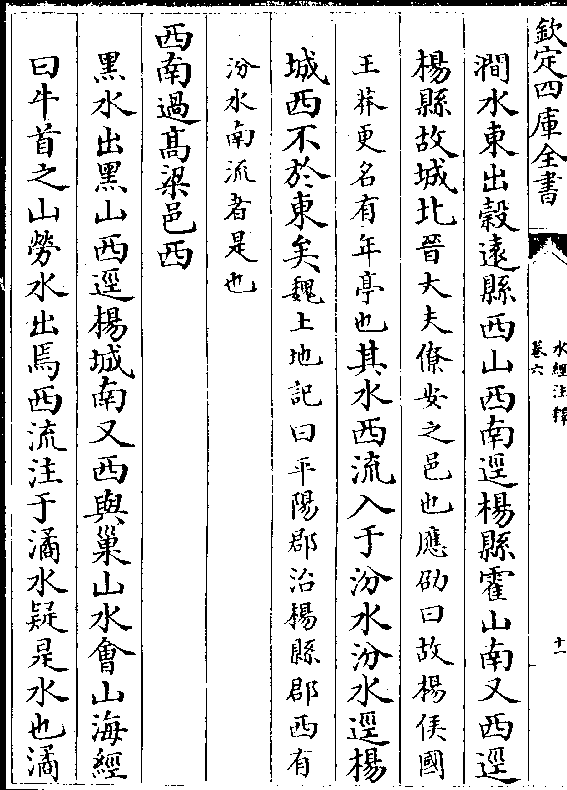 欽定四庫全書
水經注釋
卷六
十一
澗水東出穀遠縣西山西南逕楊縣霍山南又西逕
楊縣故城北晉大夫僚安之邑也應劭曰故楊侯國
王莽更名有年亭也其水西流入于汾水汾水逕楊
城西不於東矣魏土地記曰平陽郡治楊縣郡西有
汾水南流者是也
西南過髙梁邑西
黒水出黒山西逕楊城南又西與巢山水會山海經
曰牛首之山勞水出焉西流注于潏水疑是水也潏